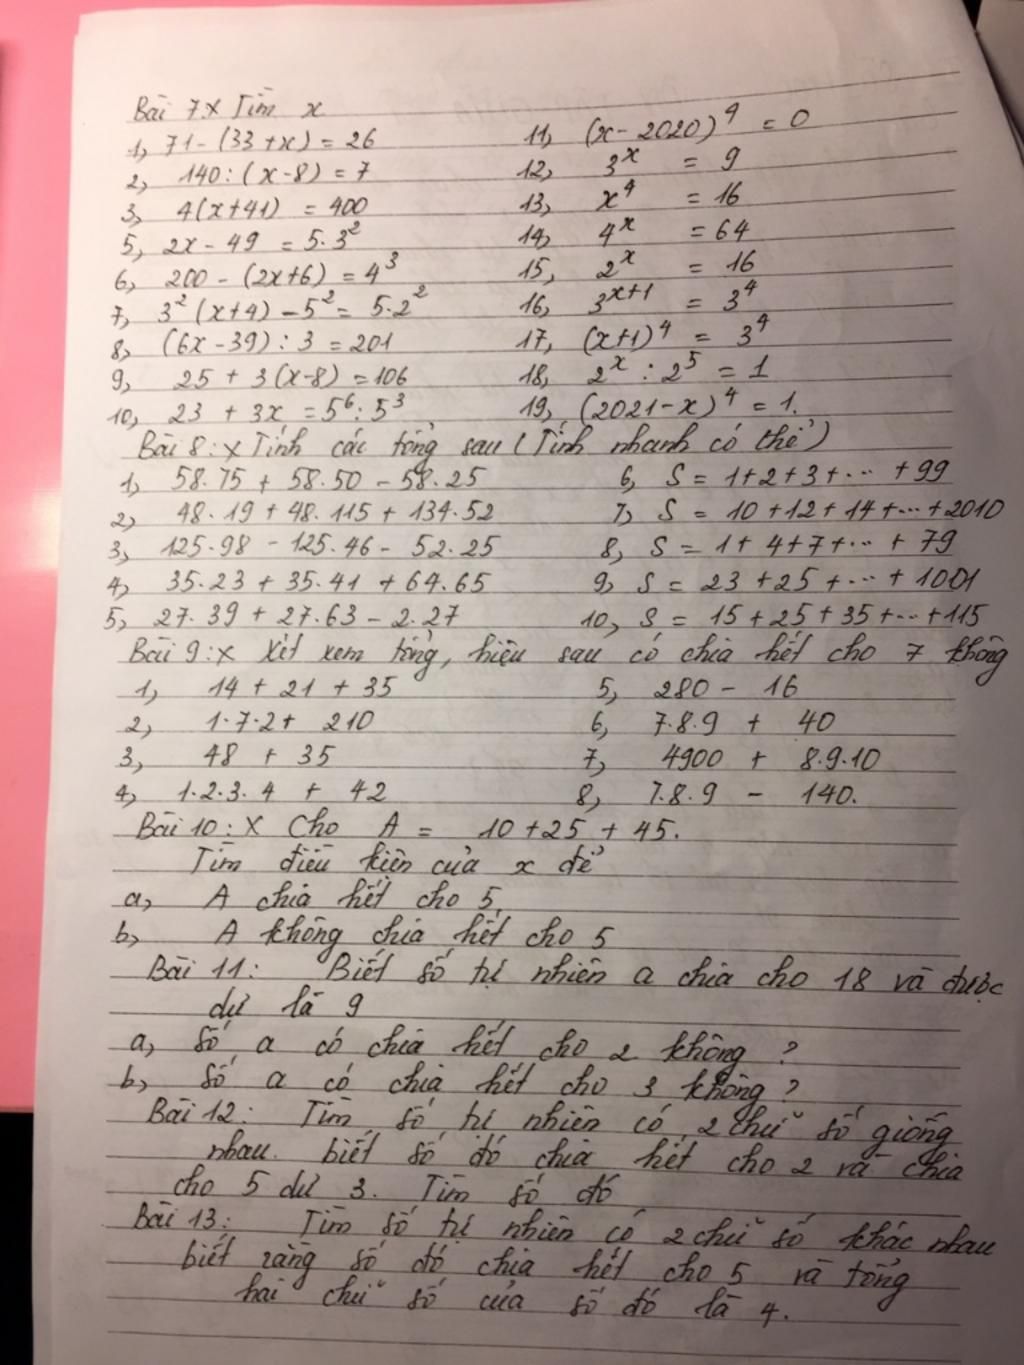 Bài 7: x Tìm x
1, 71 - (33 + x) = 26
2, 140 : (x - 8) = 7
3, 4(x + 41) = 400
5, 2x - 49 = 5.3²
6, 200 - (2x + 6) = 4³
7, 3²(x + 4) - 5² = 5.2²
8, (6x - 39) : 3 = 201
9, 25 + 3(x - 8) = 106
10, 23 + 3x = 5⁶ : 5³
11, (x - 2020)⁴ = 0
12, 3ˣ = 9
13, x⁴ = 16
14, 4ˣ = 64
15, 2ˣ = 16
16, 3ˣ⁺¹ = 3⁴
17, (x + 1)⁴ = 3⁴
18, 2ˣ : 2⁵ = 1
19, (2021 - x)⁴ = 1.
Bài 8: x Tính các tổng sau (Tính nhanh có thể)
1, 58.75 + 58.50 - 58.25
2, 48.19 + 48.115 + 134.52
3, 125.98 - 125.46 - 52.25
4, 35.23 + 35.41 + 64.65
5, 27.39 + 27.63 - 2.27
6, S = 1 + 2 + 3 + ... + 99
7, S = 10 + 12 + 14 + ... + 2010
8, S = 1 + 4 + 7 + ... + 79
9, S = 23 + 25 + ... + 1001
10, S = 15 + 25 + 35 + ... + 115
Bài 9: x Xét xem tổng, hiệu sau có chia hết cho 7 không
1, 14 + 21 + 35
2, 1.7.2 + 210
3, 48 + 35
4, 1.2.3.4 + 42
5, 280 - 16
6, 7.8.9 + 40
7, 4900 + 8.9.10
8, 7.8.9 - 140.
Bài 10: x Cho A = 10 + 25 + 45.
Tìm điều kiện của x để
a, A chia hết cho 5
b, A không chia hết cho 5
Bài 11: Biết số tự nhiên a chia cho 18 và được
dư là 9
a, Số a có chia hết cho 2 không ?
b, Số a có chia hết cho 3 không ?
Bài 12: Tìm số tự nhiên có 2 chữ số giống
nhau. biết số đó chia hết cho 2 và chia
cho 5 dư 3. Tìm số đó
Bài 13: Tìm số tự nhiên có 2 chữ số khác nhau
biết rằng số đó chia hết cho 5 và tổng
hai chữ số của số đó là 4.